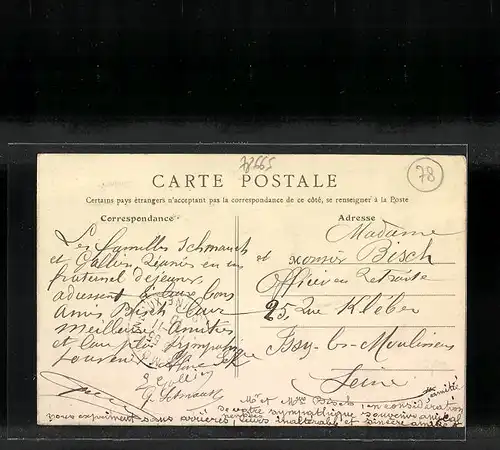 78665
78
CARTE POSTALE
Certains pays étrangers n'acceptant pas la correspondance de ce côté, se renseigner à la Poste
Correspondance
Adresse
Les familles Schmauch
et Gallien réunies en un
fraternel déjeuner
adressent à leurs bons
amis Bisch leurs
meilleures amitiés
et leur plus sympathique
souvenir
G. Schmauch
Madame
et Monsieur Bisch
Officier en Retraite
25 Rue Kléber
Issy-les-Moulineaux
Seine
Mr et Mme Bisch, en considération
de votre sympathique souvenir amical
vous expriment sans arrières pensées, leurs inaltérable et sincère amitié